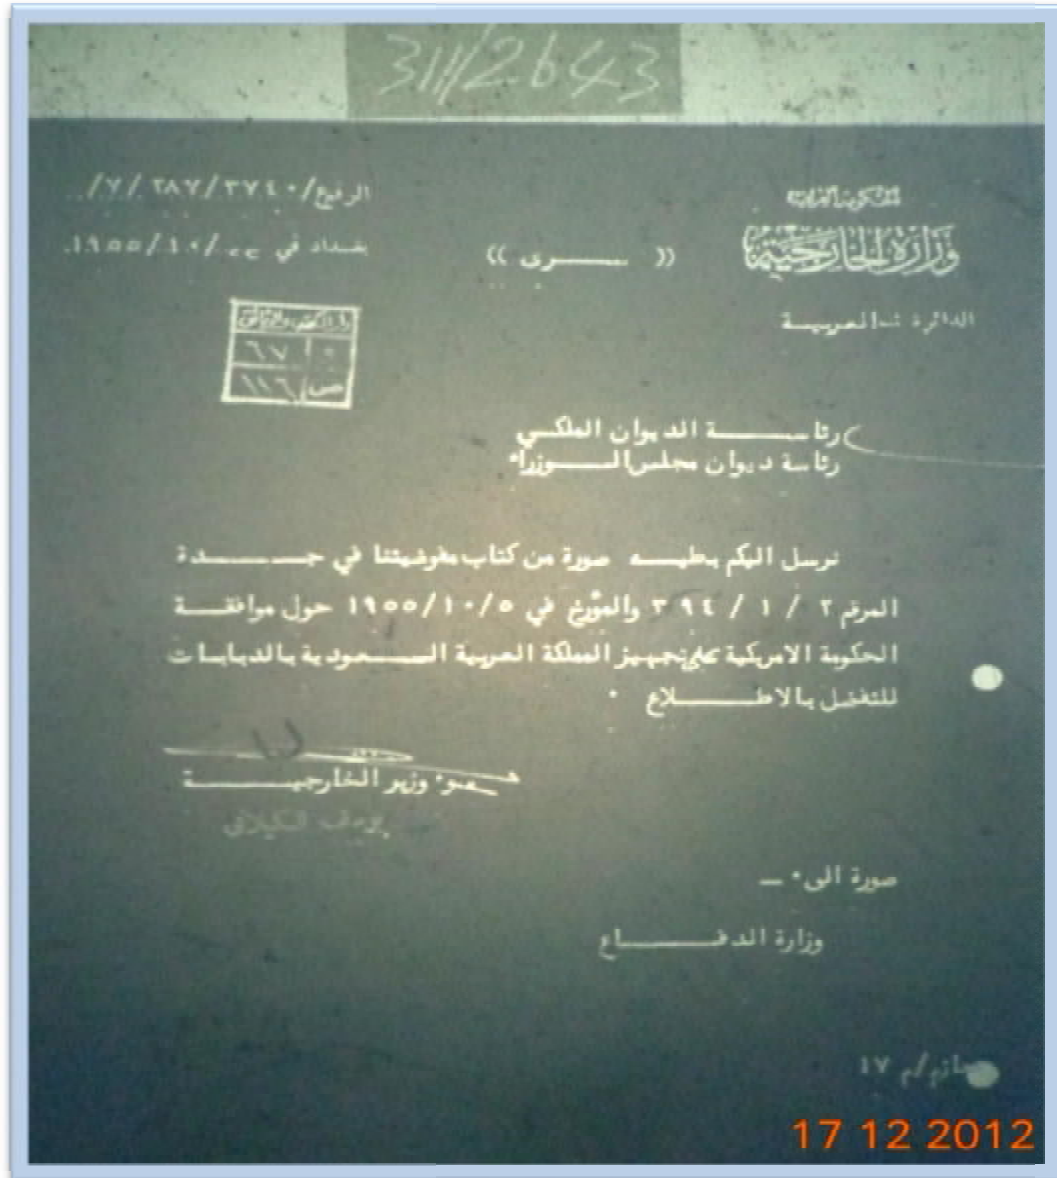 311/2643
الحكومة العراقية
وزارة الخارجية
الدائرة العربية
الرقم/٣٧٤٠/٢٨٧/٧/
بغداد في /١٠/١٩٥٥
(( ســـرى ))
دار الكتب والوثائق
و ٦٧
ص
رئاســـة الديوان الملكــي
رئاسة ديوان مجلس الــوزراء
نرسل اليكم بطيــه صورة من كتاب مفوضيتنا في جــــدة
المرقم ٢ / ١ / ٣٩٤ والمؤرخ في ١٩٥٥/١٠/٥ حول موافقــة
الحكومة الامريكية على تجهيز المملكة العربية الســعودية بالدبابات
للتفضل بالاطـــلاع ٠
وزير الخارجيـــة
يوسف الكيلاني
صورة الى ٠ ـ
وزارة الدفــــاع
م ١٧
17 12 2012